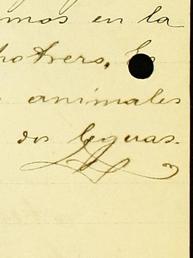 mos en la
potrero, Es
animales
dos Eguas.